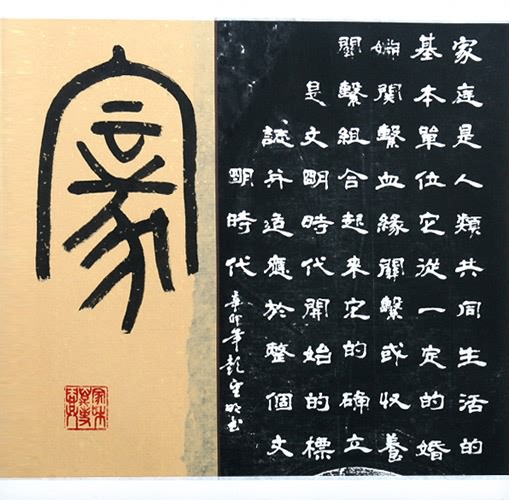 家庭是人類共同生活的
基本單位它從一定的婚
姻關繫血緣關繫或收養
關繫組合起來它的確立
是文朙時代開始的標
誌并适應於整個文
朙時代
辛卯年彭书
家